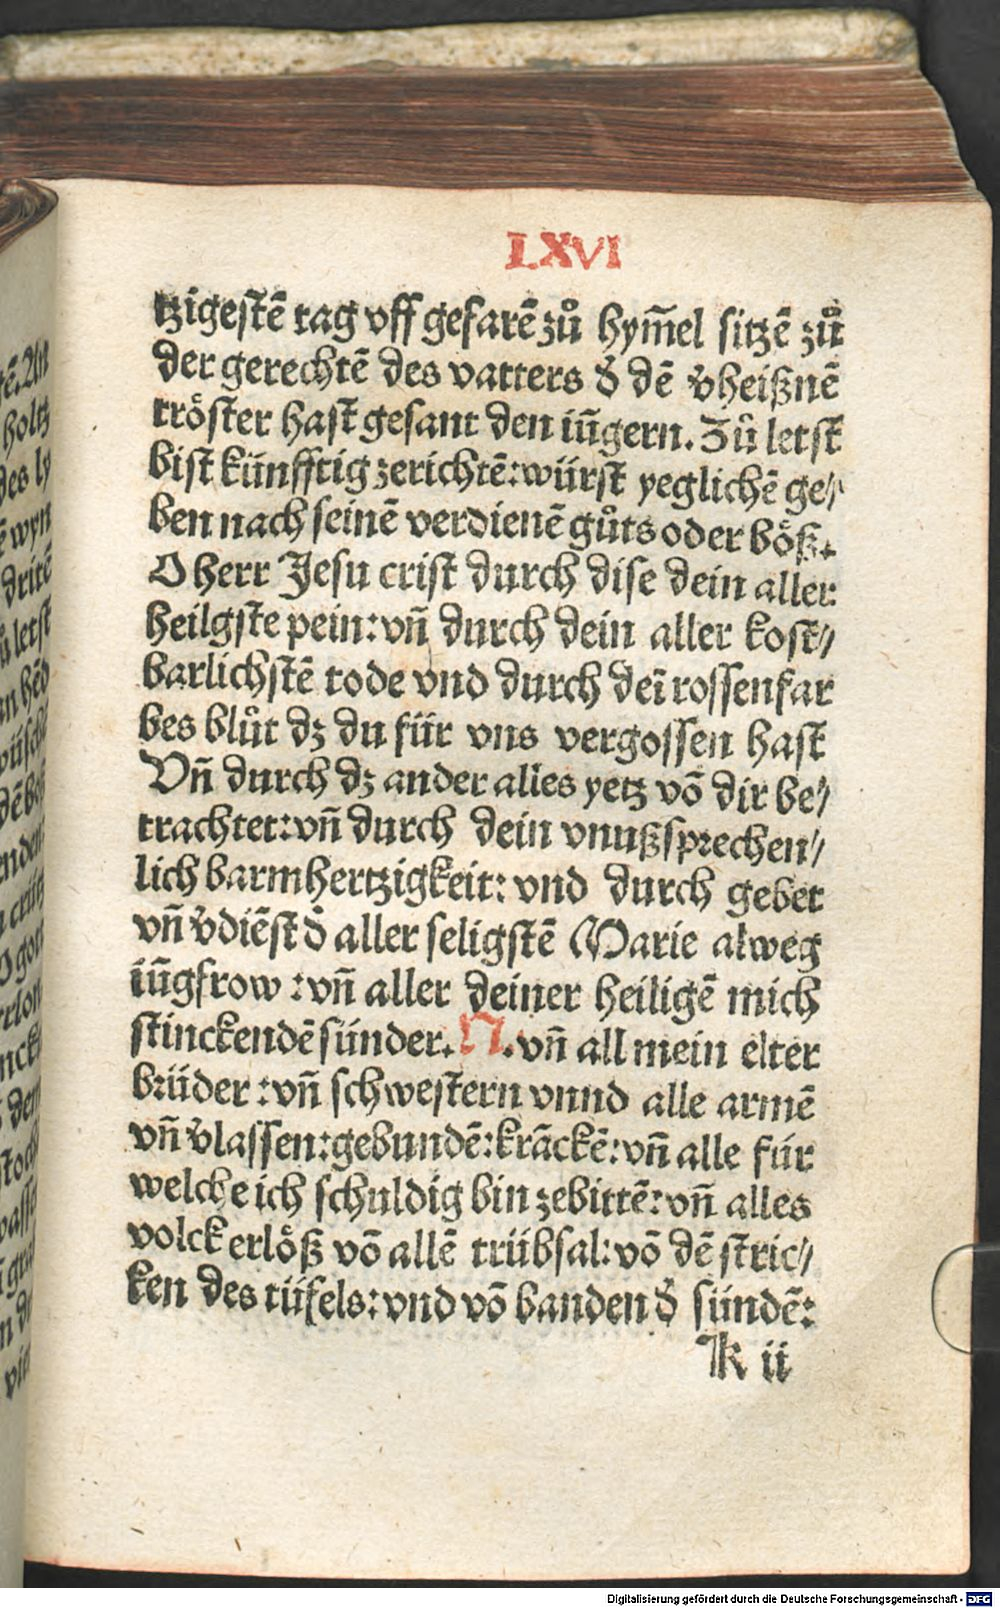 LXVI
tzigestē tag vff gefarē zů hym̄el sitzē zů
der gerechtē des vatters d̓ dē v̓heißnē
tröster hast gesant den iūgern. Zů letst
bist künfftig zerichtē: würst yeglichē ge⸗
ben nach seinē verdienē gůts oder böß.
O herr Jesu crist durch dise dein aller
heilgste pein: vn̄ durch dein aller kost⸗
barlichstē tode vnd durch deī rossenfar
bes blůt dz du für vns vergossen hast
Vn̄ durch dz ander alles yetz vō dir be⸗
trachtet: vn̄ durch dein vnußsprechen⸗
lich barmhertzigkeit: vnd durch gebet
vn̄ v̓diēst d̓ aller seligstē Marie alweg
iūgfrow: vn̄ aller deiner heiligē mich
stinckendē sünder. N. vn̄ all mein elter
brüder: vn̄ schwestern vnnd alle armē
vn̄ v̓lassen: gebundē: krāckē: vn̄ alle für
welche ich schuldig bin zebittē: vn̄ alles
volck erlöß vō allē trübsal: vō dē stric⸗
ken des tüfels: vnd vō banden d̓ sündē:
K ii
Digitalisierung gefördert durch die Deutsche Forschungsgemeinschaft - DFG